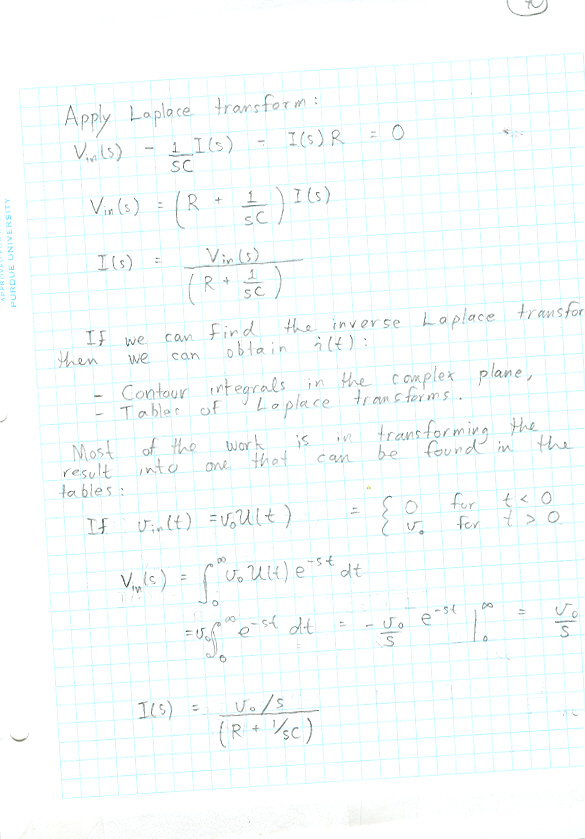 Apply Laplace transform:
Vin(s) - 1/sC I(s) - I(s) R = 0
Vin(s) = (R + 1/sC) I(s)
I(s) = Vin(s) / (R + 1/sC)
If we can find the inverse Laplace transfor
then we can obtain i(t):
- Contour integrals in the complex plane,
- Tables of Laplace transforms.
Most of the work is in transforming the
result into one that can be found in the
tables:
If vin(t) = v₀U(t) = { 0 for t < 0
{ v₀ for t > 0
Vin(s) = ∫₀^∞ v₀ U(t) e^-st dt
= v₀ ∫₀^∞ e^-st dt = - v₀/s e^-st |₀^∞ = v₀/s
I(s) = v₀/s / (R + 1/sC)
PURDUE UNIVERSITY